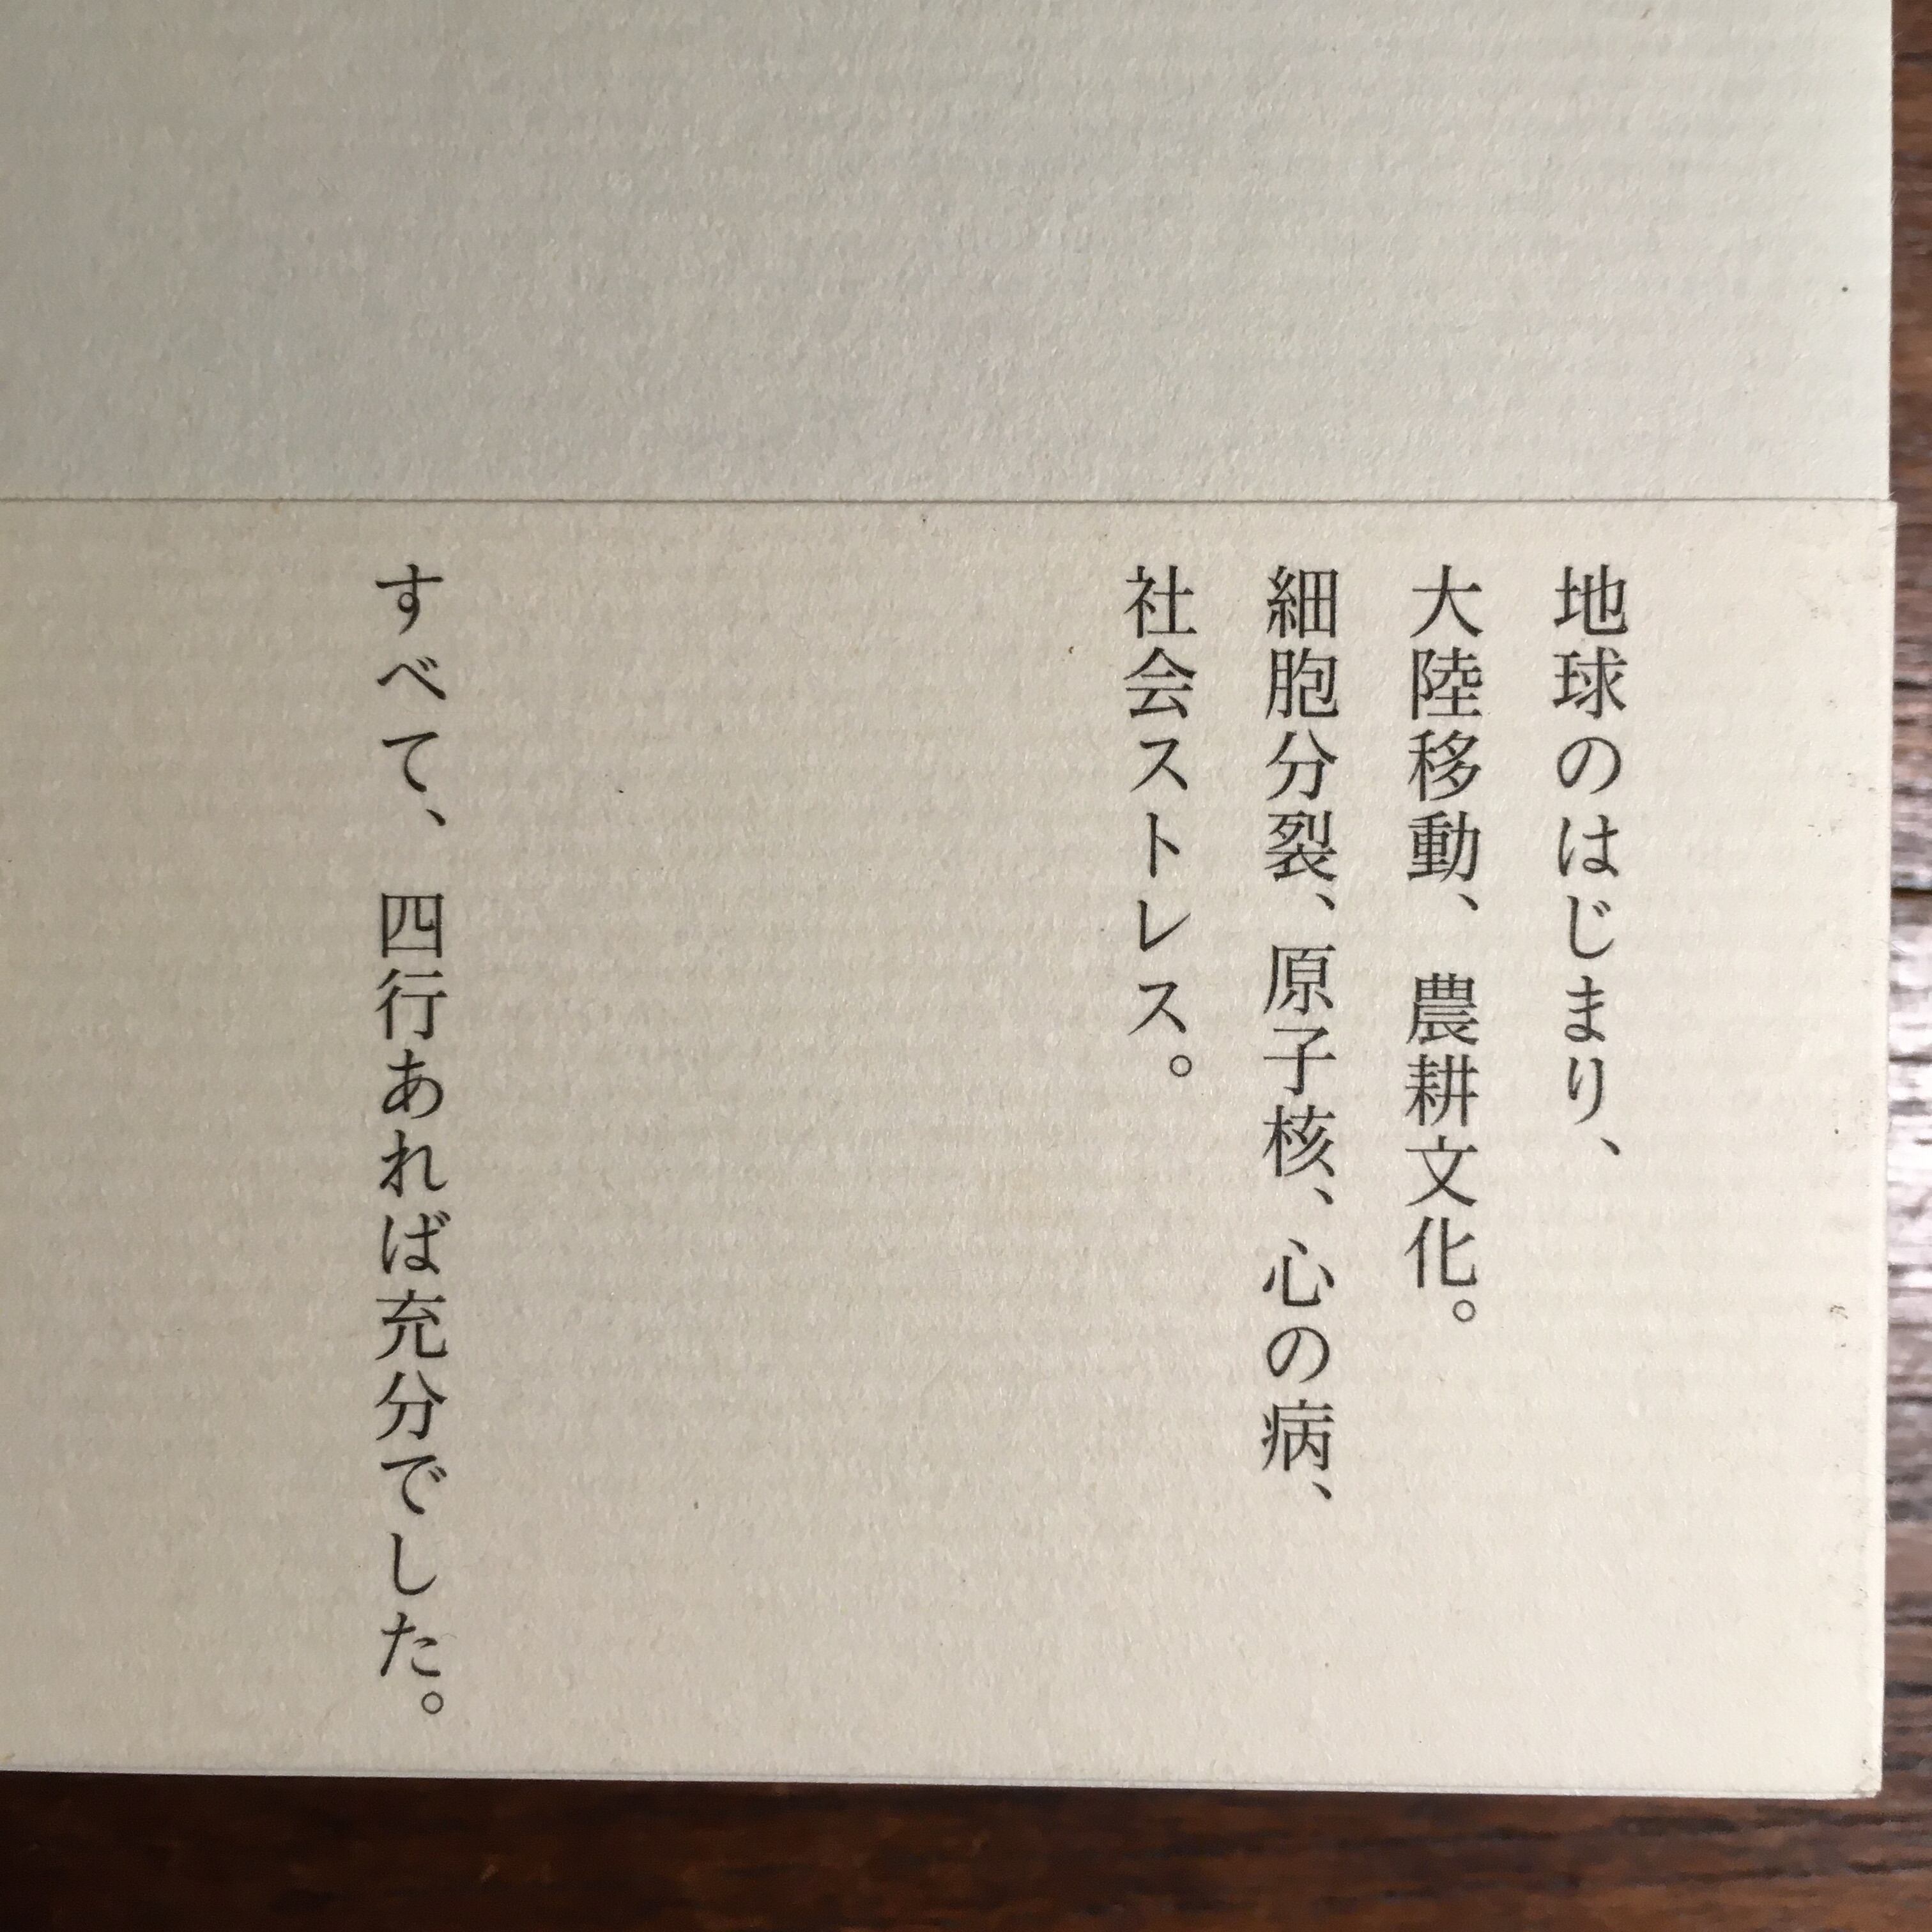 地球のはじまり、
大陸移動、農耕文化。
細胞分裂、原子核、心の病、
社会ストレス。
すべて、四行あれば充分でした。